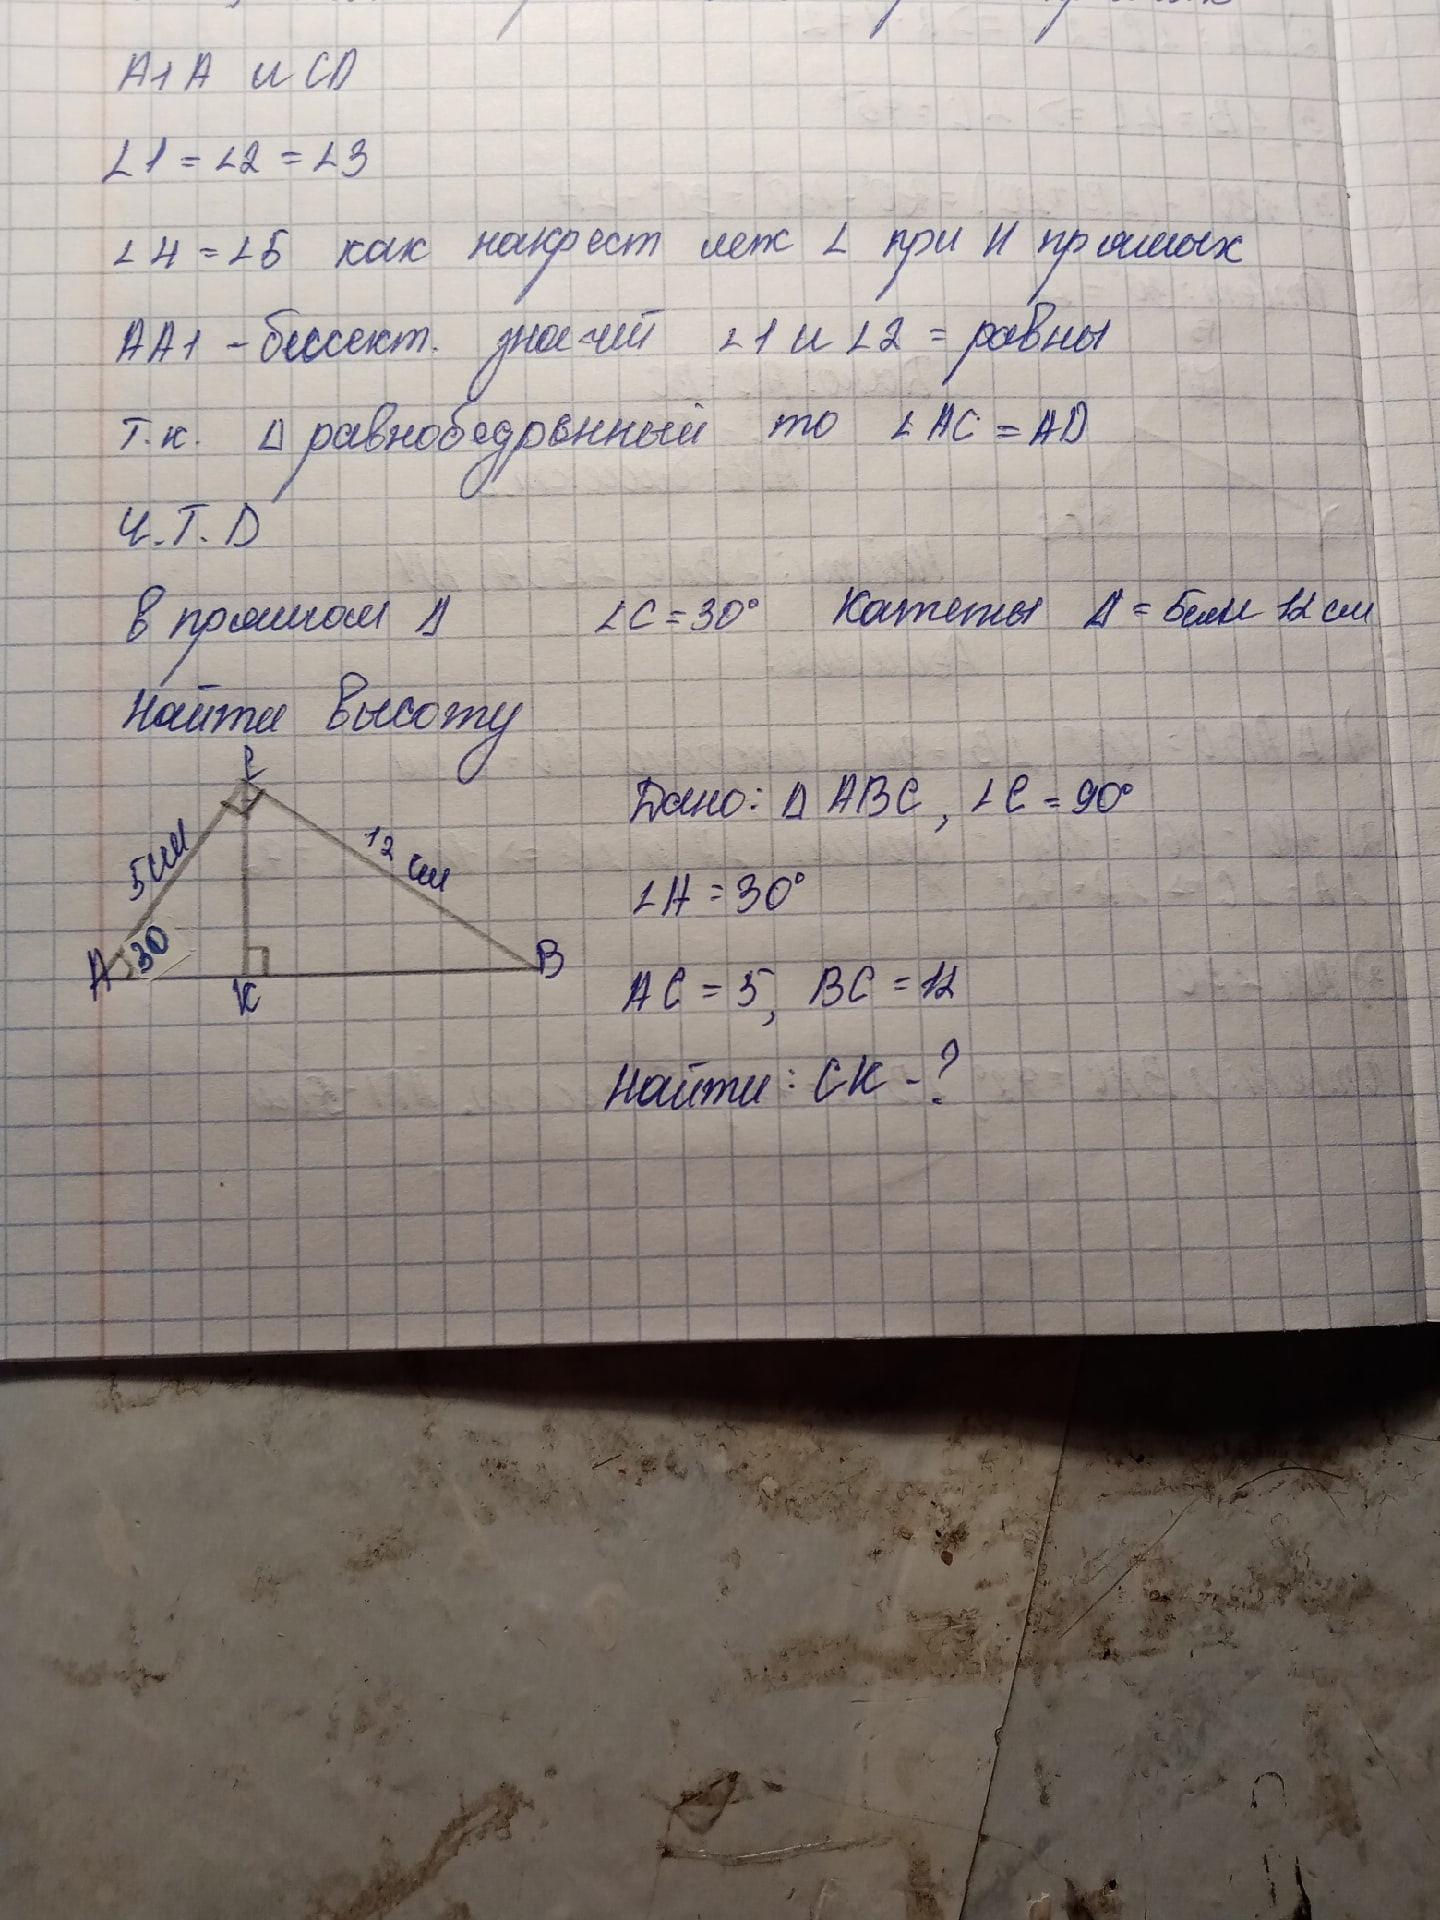 А1А и CD
∠1 = ∠2 = ∠3
∠4 = ∠5 как накрест леж ∠ при II прямых
АА1 - биссект. значит ∠1 и ∠2 = равны
Т.к. Δ равнобедренный то ∠ АС = AD
Ч.Т.D
В прямом Δ ∠C = 30° Катеты Δ = 5см и 12 см
Найти высоту
C
5см
12 см
А 30
К
В
Дано: Δ АВС, ∠C = 90°
∠А = 30°
АС = 5, ВС = 12
Найти: СК - ?